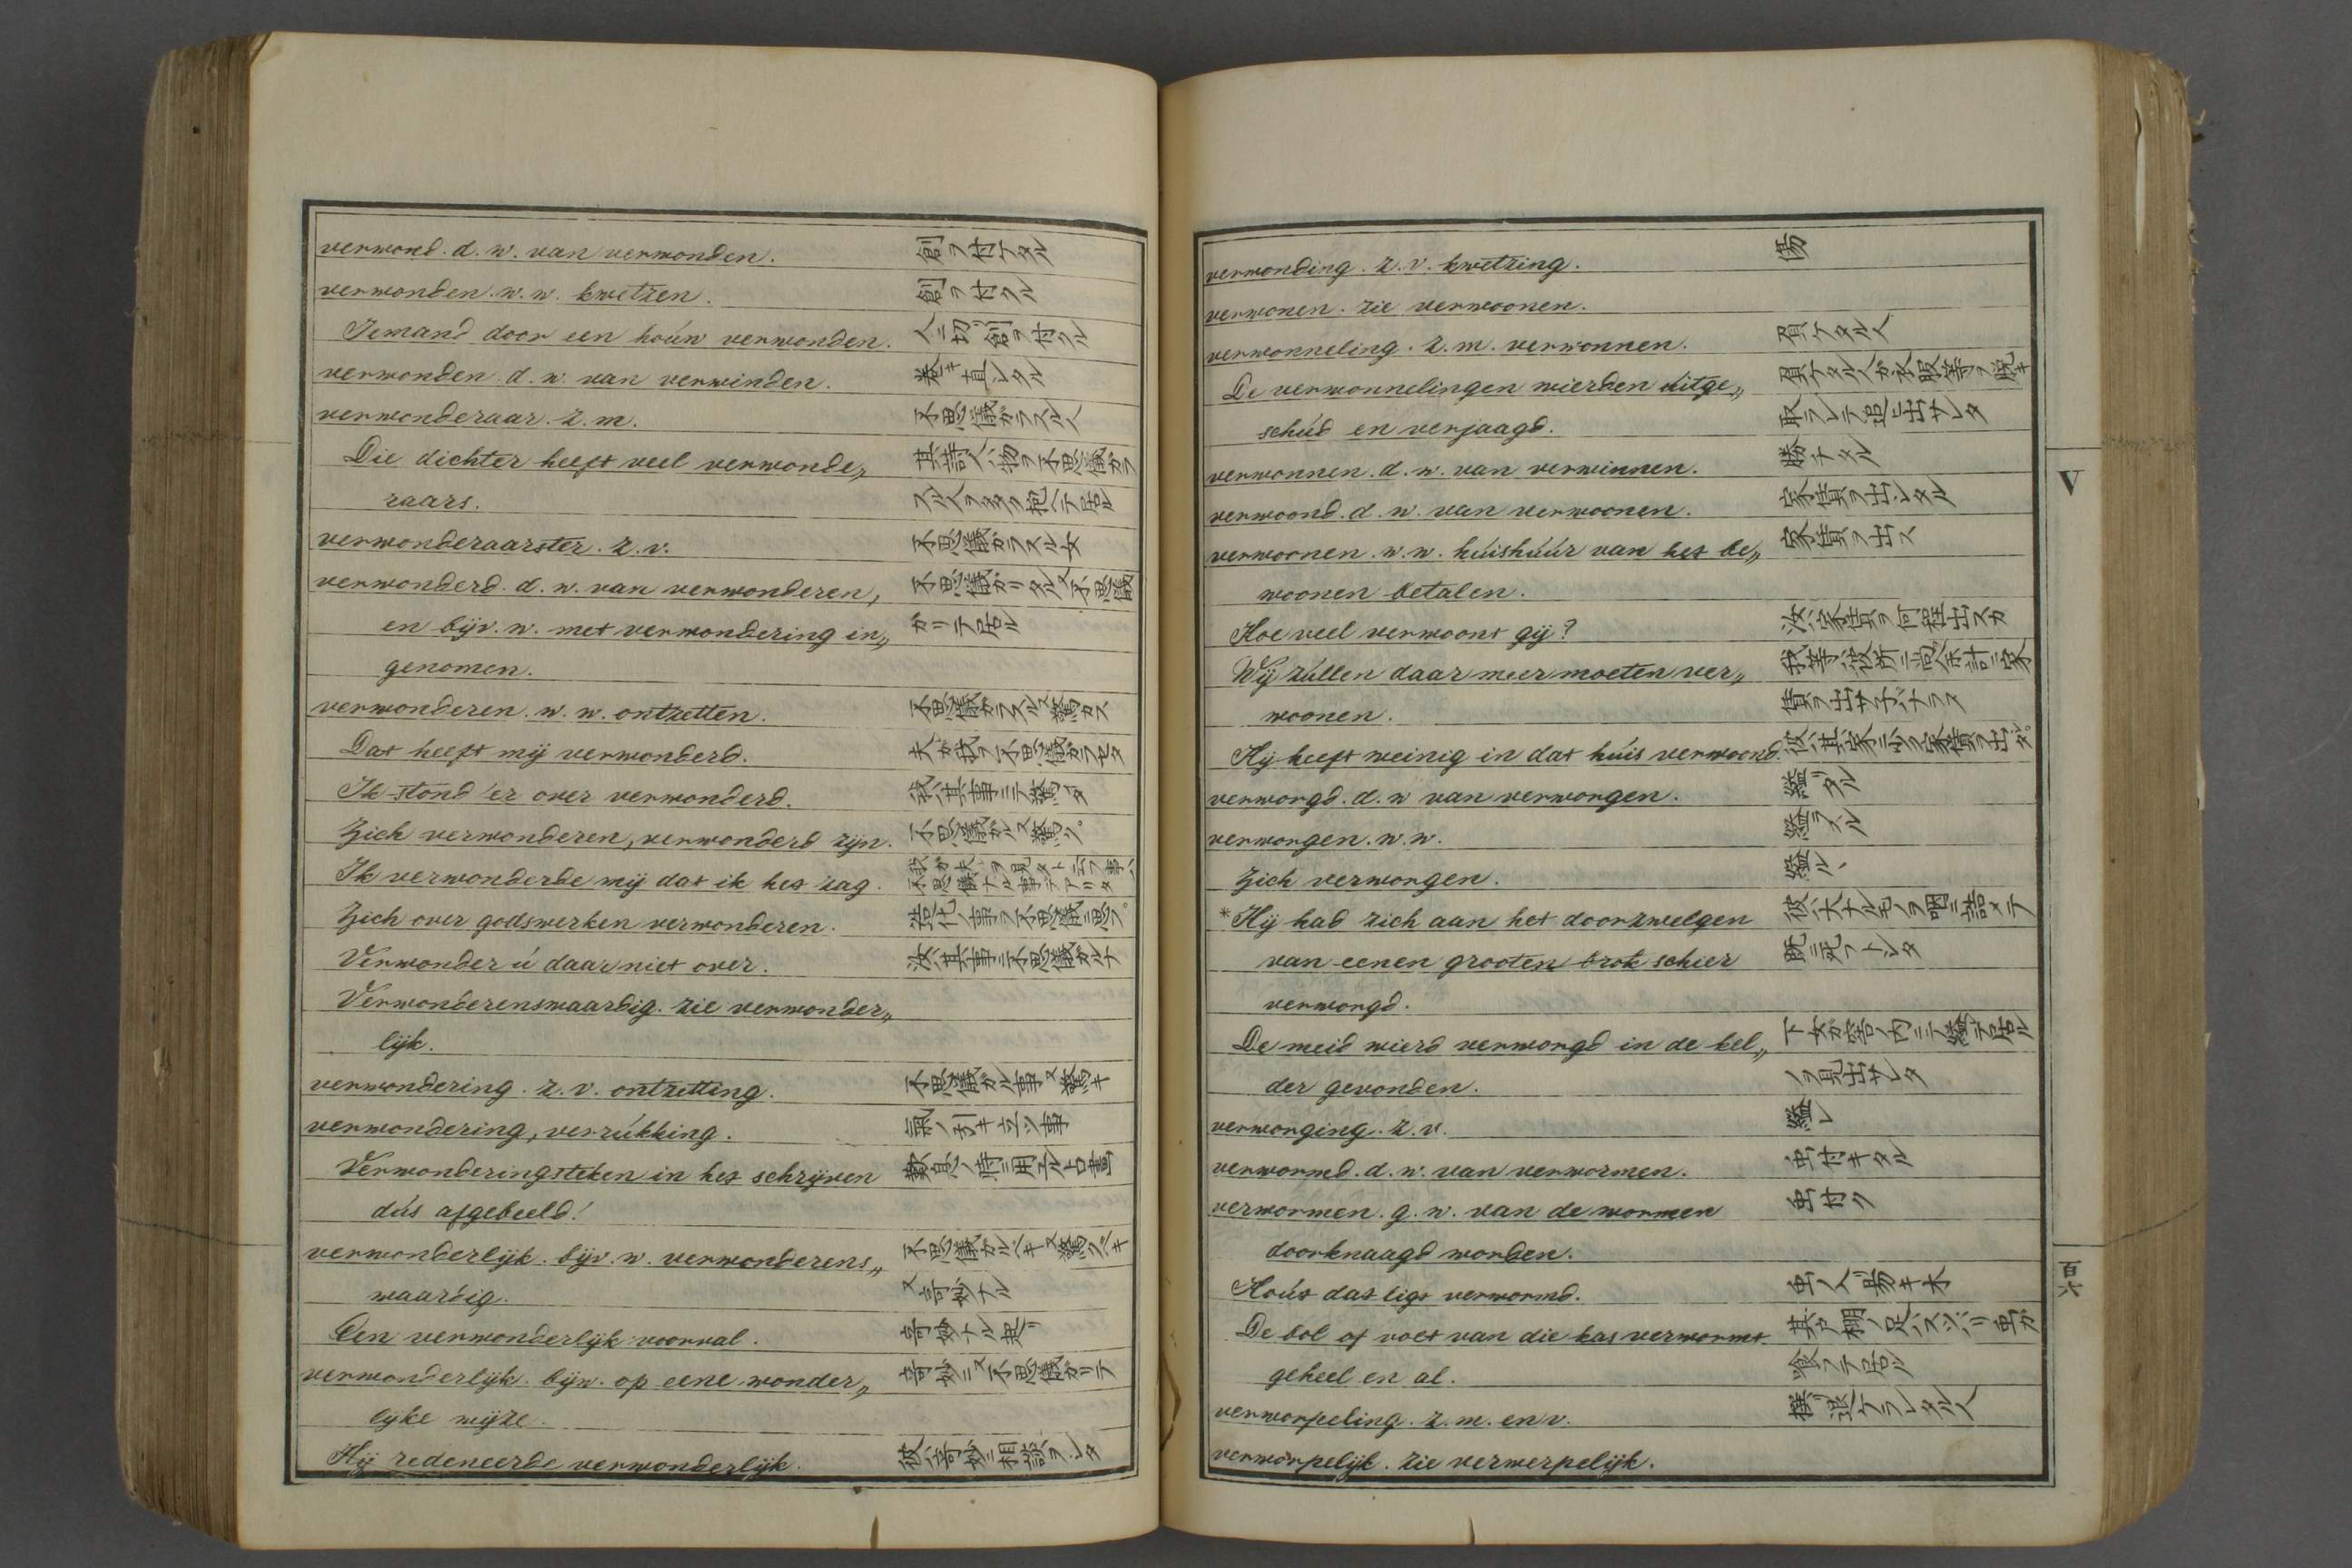 verwond. d. w. van verwonden. 創ヲ付ケタル
verwonden. w. w. kwetzen. 創ヲ付クル
Iemand door een houw verwonden. 人ニ切創ヲ付クル
verwonden. d. w. van verwinden. 巻キ直シタル
verwonderaar. z. m. 不思儀ガラスル人
Die dichter heeft veel verwonde„ 其詩人ハ物ヲ不思儀ガラ
raars. スル人ヲ多ク抱ヘテ居ル
verwonderaarster. z. v. 不思儀ガラスル女
verwonderd. d. w. van verwonderen, 不思儀ガリタル又不思儀
en bijv. w. met verwondering in„ ガリテ居ル
genomen.
verwonderen. w. w. ontzetten. 不思儀ガラスル又驚カス
Dat heeft mij verwonderd. 夫ガ我ヲ不思儀ガラセタ
Ik stond 'er over verwonderd. 我ハ其事ニテ驚イタ
Zich verwonderen, verwonderd zijn. 不思儀ガル又驚ク。
Ik verwonderde mij dat ik het zag. 我ガ夫ヲ見タト云フ事ハ不思儀ナル事デアリタ
Zich over godswerken verwonderen. 造化ノ事ヲ不思儀ニ思フ。
Verwonder ú daar niet over. 汝ハ其事ニ不思儀ガルナ
Verwonderenswaardig. zie verwonder„
lijk.
verwondering. z. v. ontzetting. 不思儀ガル事又驚キ
verwondering, verrúkking. 氣ノ引キ立ツ事
Verwonderingsteken in het schrijven 歎息ノ時ニ用フル占書
dús afgebeeld!
verwonderlijk. bijv. w. verwonderens„ 不思儀ガルベキ又驚クベキ
waardig. 又奇妙ナル
Een verwonderlijk voorval. 奇妙ナル起リ
verwonderlijk. bijw. op eene wonder„ 奇妙ニ又不思儀ガリテ
lijke wijze.
Hij redeneerde verwonderlijk. 彼ハ奇妙ニ相談ヲシタ
verwonding. z. v. kwetzing. 傷
verwonen. zie verwoonen.
verwonneling. z. m. verwonnen. 負ケタル人
De verwonnelingen wierden uitge„ 負ケタル人ガ衣服等ヲ脱キ
schúd en verjaagd. 取ラレテ追出サレタ
verwonnen. d. w. van verwinnen. 勝チタル
verwoond. d. w. van verwoonen. 家賃ヲ出シタル
verwoonen. w. w. húishúúr van het be„ 家賃ヲ出ス
woonen betalen.
Hoe veel verwoont gij? 汝ハ家賃ヲ何程出スカ
Wij zúllen daar meer moeten ver„ 我等ハ彼所ニ尚余計ニ家
woonen. 賃ヲ出サ子バナラヌ
Hij heeft weinig in dat húis verwoond. 彼ハ其家ニ少ク家賃ヲ出シタ。
verworgd. d. w van verworgen. 縊リタル
verworgen. w. w. 縊ラスル
Zich verworgen. 縊ル、
*Hij had zich aan het doorzwelgen 彼ハ大ナルモノヲ咽ニ詰メテ
van eenen grooten brok schier 既ニ死ナフトシタ
verworgd.
De meid wierd verworgd in de kel„ 下女ガ窖ノ内ニテ縊テ居ル
der gevonden. ヲ見出サレタ
verworging. z. v. 縊レ
verwormd. d. w. van verwormen. 虫付キタル
verwormen. g. w. van de wormen 虫付ク
doorknaagd worden.
Hoút dat ligt verwormd. 虫ノ入リ易キ木
De bol of voet van die kas verwormt 其戸棚ノ足ハスッハリ虫ガ
geheel en al. 喰フテ居ル
verworpeling. z. m. en v. 擇リ退ケラレタル人
verworpelijk. zie verwerpelijk.
V
百六